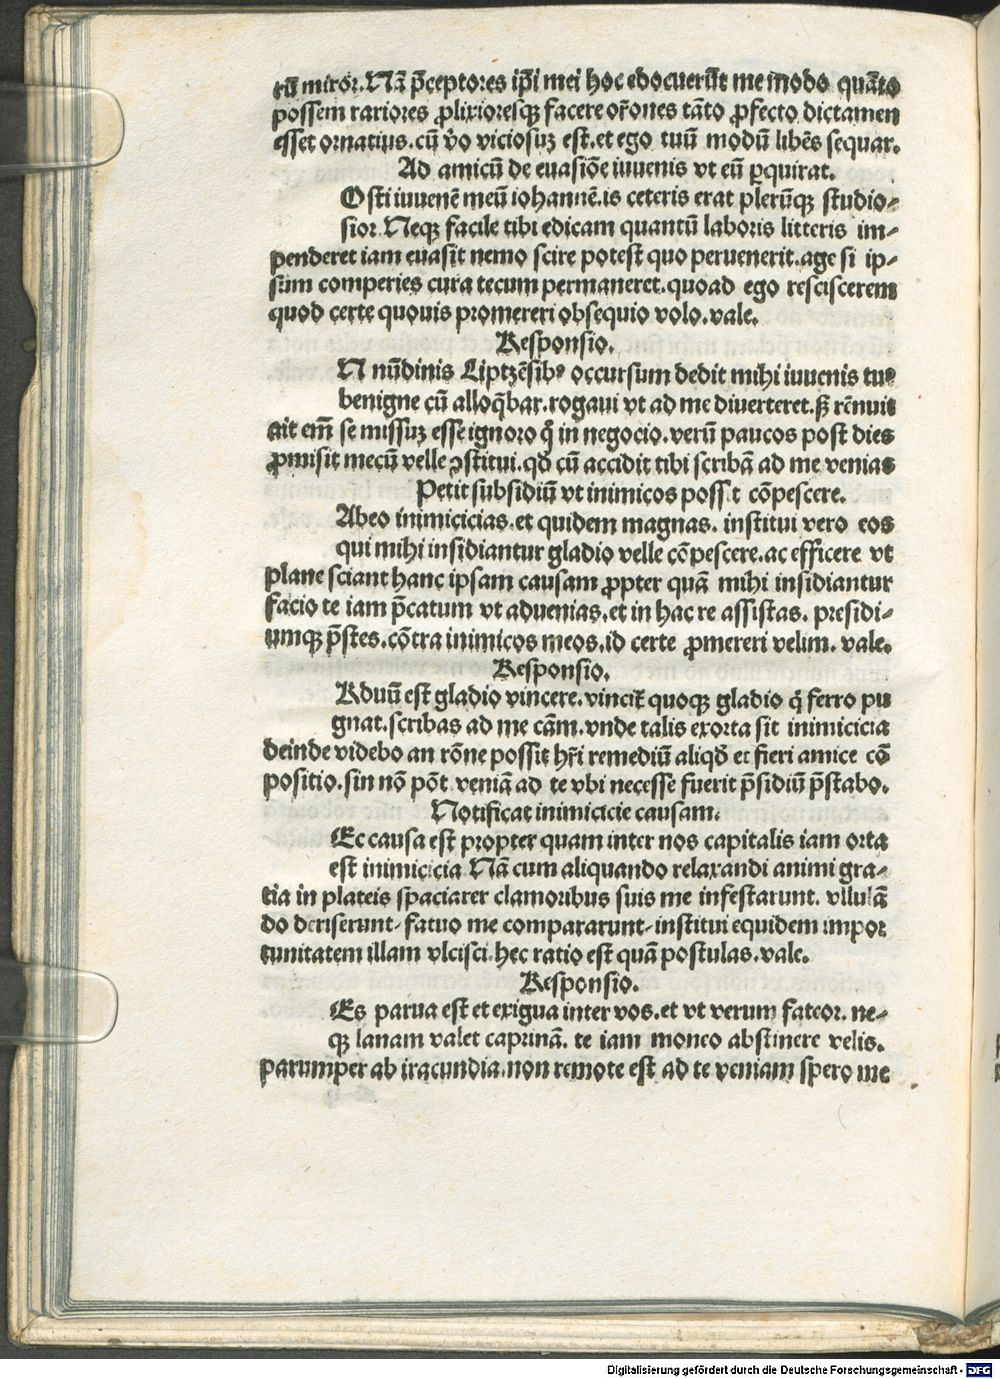 tũ miror. Nã p̃ceptores ip̃i mei hoc edocuerũt me modo quãto
possem rariores ꝓlixioresqꝫ facere or̃ones tãto ꝓfecto dictamen
esset ornatius. cũ ṽo viciosuꝫ est. et ego tuũ modũ libẽs sequar.
Ad amicũ de euasiõe iuuenis vt eũ ꝑquirat.
Osti iuuenẽ meũ iohannẽ. is ceteris erat plerũqꝫ studio⸗
sior. Neqꝫ facile tibi edicam quantũ laboris litteris im⸗
penderet iam euasit nemo scire potest quo peruenerit. age si ip⸗
sum comperies cura tecum permaneret. quoad ego resciscerem
quod certe quouis promereri obsequio volo. vale.
Responsio.
N nũdinis Liptzẽsibꝰ occursum dedit mihi iuuenis tuꝰ
benigne cũ alloq̃bar. rogaui vt ad me diuerteret. sꝫ rẽnuit
ait em̃ se missuꝫ esse ignoro q̃ in negocio. verũ paucos post dies
ꝓmisit mecũ velle ꝯstitui. qd̃ cũ accidit tibi scribã ad me venias
Petit subsidiũ vt inimicos poss t cõpescere.
Abeo inimicicias. et quidem magnas. institui vero eos
qui mihi insidiantur gladio velle cõpescere. ac efficere vt
plane sciant hanc ipsam causam ꝓpter quã mihi insidiantur
facio te iam p̃catum vt aduenias. et in hac re assistas. presidi⸗
umqꝫ p̃stes. cõtra inimicos meos. id certe ꝓmereri velim. vale.
Responsio.
Rduũ est gladio vincere. vincit̃ quoqꝫ gladio q̃ ferro pu
gnat. scribas ad me cãm. vnde talis exorta sit inimicicia
deinde videbo an rõne possit hr̃i remediũ aliqd̃ et fieri amice cõ
positio. sin nõ põt veniã ad te vbi necesse fuerit p̃sidiũ p̃stabo.
Notificat inimicicie causam.
Ec causa est propter quam inter nos capitalis iam orta
est inimicicia Nã cum aliquando relaxandi animi gra⸗
tia in plateis spaciarer clamoribus suis me infestarunt. vllulã
do deriserunt⸗ fatuo me compararunt⸗ institui equidem impor
tunitatem illam vlcisci. hec ratio est quã postulas. vale.
Responsio.
Es parua est et exigua inter vos. et vt verum fateor. ne⸗
qꝫ lanam valet caprinã. te iam moneo abstinere velis.
parumper ab iracundia. non remote est ad te veniam spero me
Digitalisierung gefördert durch die Deutsche Forschungsgemeinschaft - DFG